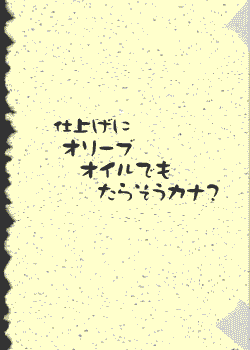 仕上げに
オリーブ
オイルでも
たらそうカナ?